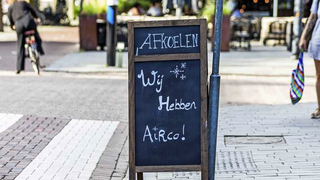 AFKOELEN
Wij
Hebben
Airco!